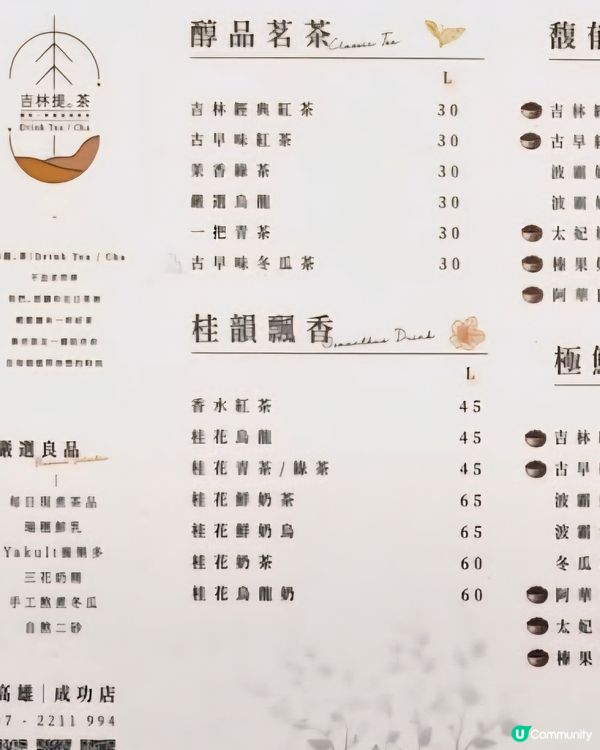 吉林提。茶
Drink Tea / Cha
醇品茗茶
Classic Tea
L
吉林經典紅茶 30
古早味紅茶 30
茉香綠茶 30
嚴選烏龍 30
一把青茶 30
古早味冬瓜茶 30
桂韻飄香
Osmanthus Drink
L
香水紅茶 45
桂花烏龍 45
桂花青茶/綠茶 45
桂花鮮奶茶 65
桂花鮮奶烏 65
桂花奶茶 60
桂花烏龍奶 60
Drink Tea / Cha
嚴選良品
每日現煮茶品
瑞穗鮮乳
Yakult養樂多
三花奶精
手工熬煮冬瓜
自熬二砂
高雄|成功店
07 - 2211 994
馥郁
吉林
古早
波霸
波霸
太妃
榛果
阿華
極鮮
吉林
古早
波霸
波霸
冬瓜
阿華
太妃
榛果
U Community